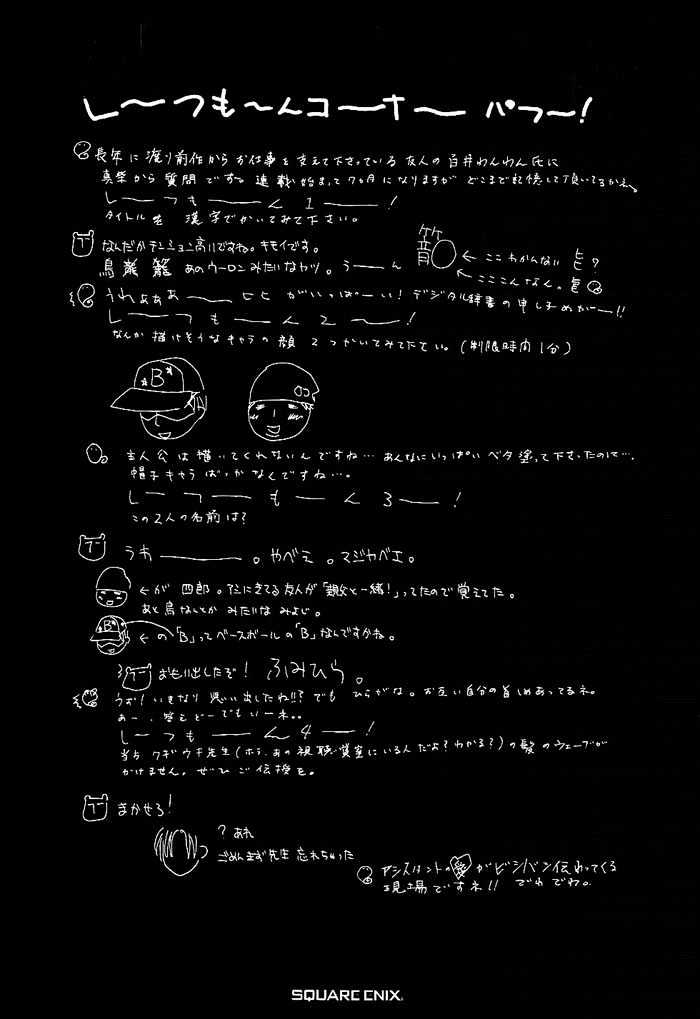 しーつもーんコーナー パフー!
長年に渡り前作からお仕事を支えて下さっている友人の百井わんわん氏に
真柴から質問です。連載始まって7ヵ月になりますがどこまで記憶して頂いてるかな。
しーつもーん1ー!
タイトルを漢字でかいてみて下さい。
なんだかテンション高いですね。キモイです。
あのウーロンみたいなヤツ。うーん
← ここわかんない ヒ?
← こここんなん。
うわぁぁぁー ヒヒ がいっぱーい! デジタル辞書の申し子めがー!!
しーつもーん2ー!
なんか描けそうなキャラの顔2つかいてみて下さい。(制限時間1分)
B
主人公は描いてくれないんですね… あんなにいっぱいベタ塗って下さったのに…。
帽子キャラばっかなんですね…。
しーつーもーん3ー!
この2人の名前は?
うわーーー。やべえ。マジヤベエ。
←が 四郎。アシにきてる友人が「親父と一緒!」ってたので覚えてた。
あと鳥なんとか みたいなみよじ。
B
←の「B」ってベースボールの「B」なんですかね。
おもい出したぞ! ふみひら。
うお!いきなり思い出したね!!? でも ひらがな。お互い自分の首しめあってるネ。
あー、答えどーでもいーネ。
しーつもーん4ー!
当方 クギウチ先生(ホラ、あの視聴覚室にいる人だよ?わかる?)の髪のウェーブが
かけません。ぜひご伝授を。
まかせろ!
?あれ
ごめんまず先生忘れちゃった
アシスタントの愛がビシバシ伝わってくる
現場ですネ!! でわでわ。
SQUARE ENIX.